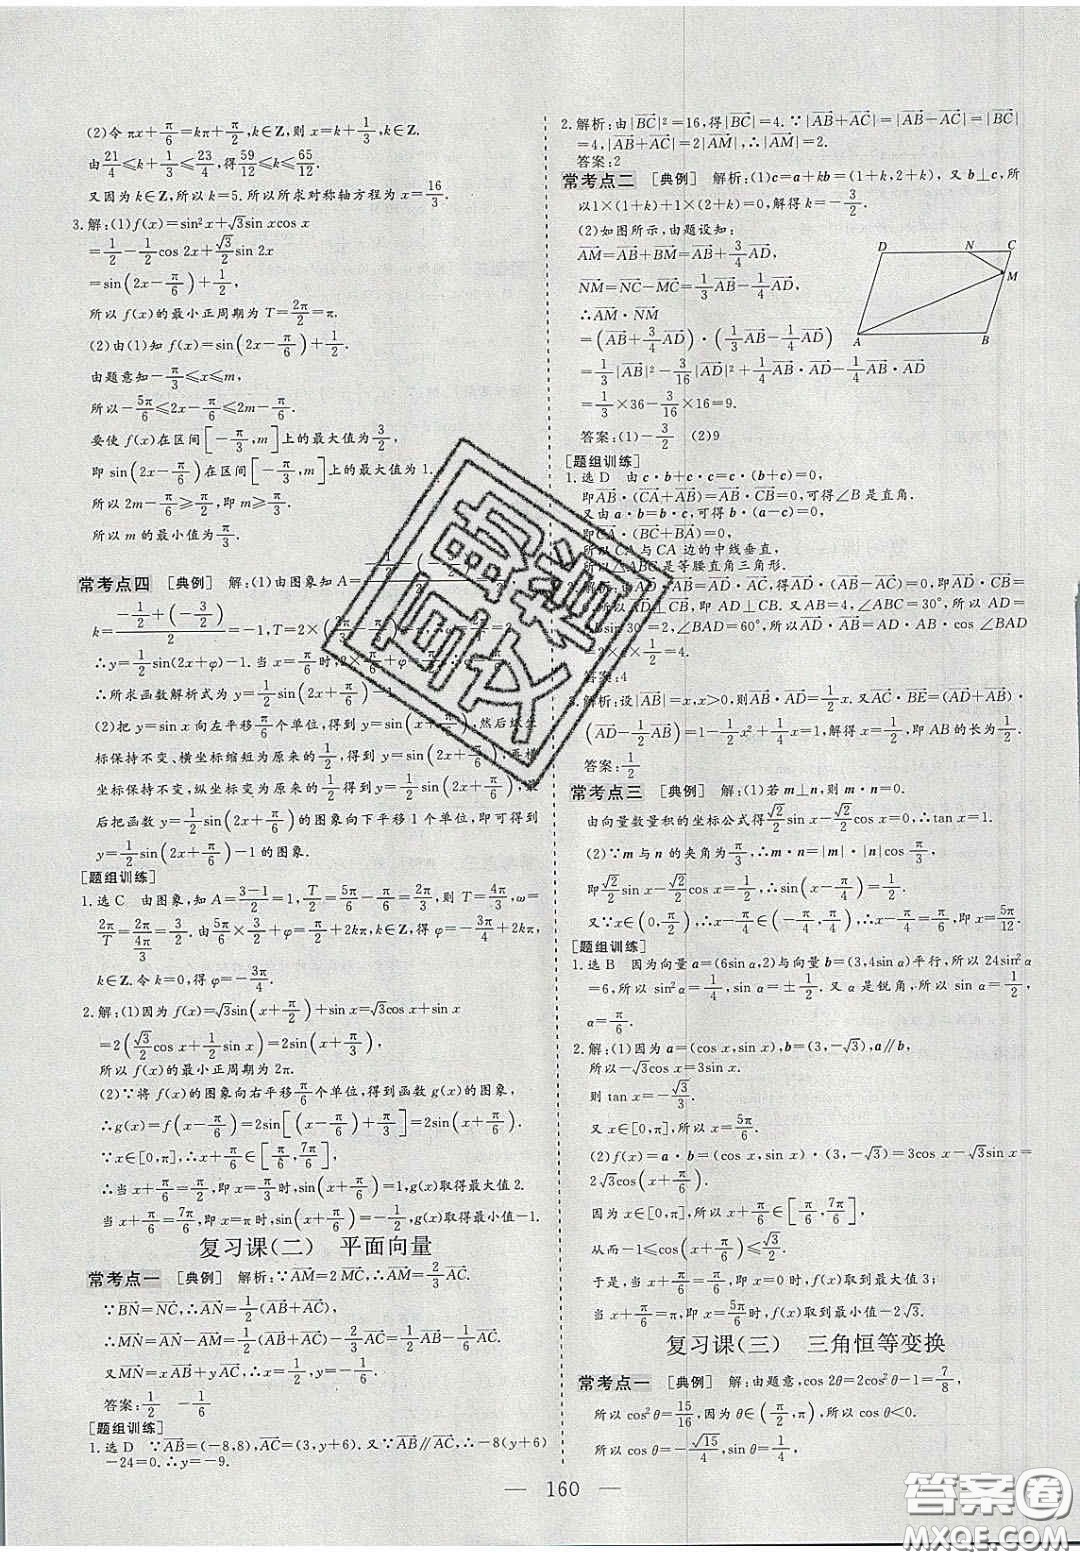 (2)令πx+π/6=kπ+π/2,k∈Z,则x=k+1/3,k∈Z.
由21/4≤k+1/3≤23/4,得59/12≤k≤65/12.
又因为k∈Z,所以k=5.所以所求对称轴方程为x=16/3.
3.解:(1)f(x)=sin²x+√3sin xcos x
=1/2-1/2cos 2x+√3/2sin 2x
=sin(2x-π/6)+1/2,
所以f(x)的最小正周期为T=2π/2=π.
(2)由(1)知f(x)=sin(2x-π/6)+1/2.
由题意知-π/3≤x≤m,
所以-5π/6≤2x-π/6≤2m-π/6.
要使f(x)在区间[-π/3,m]上的最大值为3/2,
即sin(2x-π/6)在区间[-π/3,m]上的最大值为1.
所以2m-π/6≥π/2,即m≥π/3.
所以m的最小值为π/3.
常考点四 [典例] 解:(1)由图象知A=
k=(-1/2+(-3/2))/2=-1,T=2×
∴y=1/2sin(2x+φ)-1.当x=π/6时,2×π/6+φ=
∴所求函数解析式为y=1/2sin(2x+π/6)-1.
(2)把y=sin x向左平移π/6个单位,得到y=sin(x+π/6),然后纵坐
标保持不变、横坐标缩短为原来的1/2,得到y=sin(2x+π/6),再横
坐标保持不变,纵坐标变为原来的1/2,得到y=1/2sin(2x+π/6),最
后把函数y=1/2sin(2x+π/6)的图象向下平移1个单位,即可得到
y=1/2sin(2x+π/6)-1的图象.
[题组训练]
1.选C 由图象,知A=(3-1)/2=1,T/2=5π/6-π/6=2π/3,则T=4π/3,ω=
2π/T=2π/(4π/3)=3/2.由5π/6×3/2+φ=π/2+2kπ,得φ=-3π/4+2kπ,
k∈Z.令k=0,得φ=-3π/4.
2.解:(1)因为f(x)=√3sin(x+π/2)+sin x=√3cos x+sin x
=2(√3/2cos x+1/2sin x)=2sin(x+π/3),
所以f(x)的最小正周期为2π.
(2)∵将f(x)的图象向右平移π/6个单位,得到函数g(x)的图象,
∴g(x)=f(x-π/6)=2sin[(x-π/6)+π/3]=2sin(x+π/6).
∵x∈[0,π],∴x+π/6∈[π/6,7π/6],
∴当x+π/6=π/2,即x=π/3时,sin(x+π/6)=1,g(x)取得最大值2.
当x+π/6=7π/6,即x=π时,sin(x+π/6)=-1/2,g(x)取得最小值-1.
复习课(二) 平面向量
常考点一 [典例] 解析:∵AM=2MC,∴AM=2/3AC.
∵BN=NC,∴AN=1/2(AB+AC),
∴MN=AN-AM=1/2(AB+AC)-2/3AC=1/2AB-1/6AC.
又MN=xAB+yAC,∴x=1/2,y=-1/6.
答案:1/2 -1/6
[题组训练]
1.选D ∵AB=(-8,8),AC=(3,y+6).又∵AB∥AC,∴-8(y+6)
-24=0.∴y=-9.
2.解析:由|BC|²=16,得|BC|=4.∵|AB+AC|=|AB-AC|=|BC|
=4,|AB+AC|=2|AM|,∴|AM|=2.
答案:2
常考点二 [典例] 解析:(1)c=a+kb=(1+k,2+k),又b⊥c,所
以1×(1+k)+1×(2+k)=0,解得k=-3/2.
(2)如图所示,由题设知:
AM=AB+BM=AB+3/4AD,
NM=NC-MC=1/3AB-1/4AD,
∴AM·NM
=(AB+3/4AD)·(1/3AB-1/4AD)
=1/3|AB|²-3/16|AD|²+1/4AB·AD-1/4AB·AD
=1/3×36-3/16×16=9.
答案:(1)-3/2 (2)9
D N C
M
A B
[题组训练]
1.选D 由c·b+c·c=c·(b+c)=0,
即AB·(CA+AB)=AB·CB=0,可得∠B是直角.
又由a·b=b·c,可得b·(a-c)=0,
即CA·(BC+BA)=0,
所以CA与CA边的中线垂直,
所以△ABC是等腰直角三角形.
2.解析:由AB·AD=AC·AD,得AD·(AB-AC)=0,即AD·CB=
0,所以AD⊥CB,即AD⊥CB.又AB=4,∠ABC=30°,所以AD=
sin 30°=2,∠BAD=60°,所以AB·AD=AB·AD·cos
×1/2=4.
答案:4
3.解析:设|AB|=x,x>0,则AB·AD=1/2x.又AC·BE=(AD+AB)·
(AD-1/2AB)=1-1/2x²+1/4x=1,解得x=1/2,即AB的长为1/2.
答案:1/2
常考点三 [典例] 解:(1)若m⊥n,则m·n=0.
由向量数量积的坐标公式得√2/2sin x-√2/2cos x=0,∴tan x=1.
(2)∵m与n的夹角为π/3,∴m·n=|m|·|n|cos π/3,
即√2/2sin x-√2/2cos x=1/2,∴sin(x-π/4)=1/2.
又∵x∈(0,π/2),∴x-π/4∈(-π/4,π/4),∴x-π/4=π/6,即x=5π/12.
[题组训练]
1.选B 因为向量a=(6sin α,2)与向量b=(3,4sin α)平行,所以24sin²α
=6,所以sin²α=1/4,sin α=±1/2.又α是锐角,所以sin α=1/2,
α=π/6.
2.解:(1)因为a=(cos x,sin x),b=(3,-√3),a∥b,
所以-√3cos x=3sin x.
则tan x=-√3/3.
又x∈[0,π],所以x=5π/6.
(2)f(x)=a·b=(cos x,sin x)·(3,-√3)=3cos x-√3sin x=
2√3cos(x+π/6).
因为x∈[0,π],所以x+π/6∈[π/6,7π/6],
从而-1≤cos(x+π/6)≤√3/2.
于是,当x+π/6=π/6,即x=0时,f(x)取到最大值3;
当x+π/6=π,即x=5π/6时,f(x)取到最小值-2√3.
复习课(三) 三角恒等变换
常考点一 [典例] 解:由题意,cos 2θ=2cos²θ-1=7/8,
所以cos²θ=15/16,因为θ∈(π/2,π),所以cos θ<0.
所以cos θ=-√15/4,sin θ=1/4,
— 160 —
答案圈
MXQE.COM